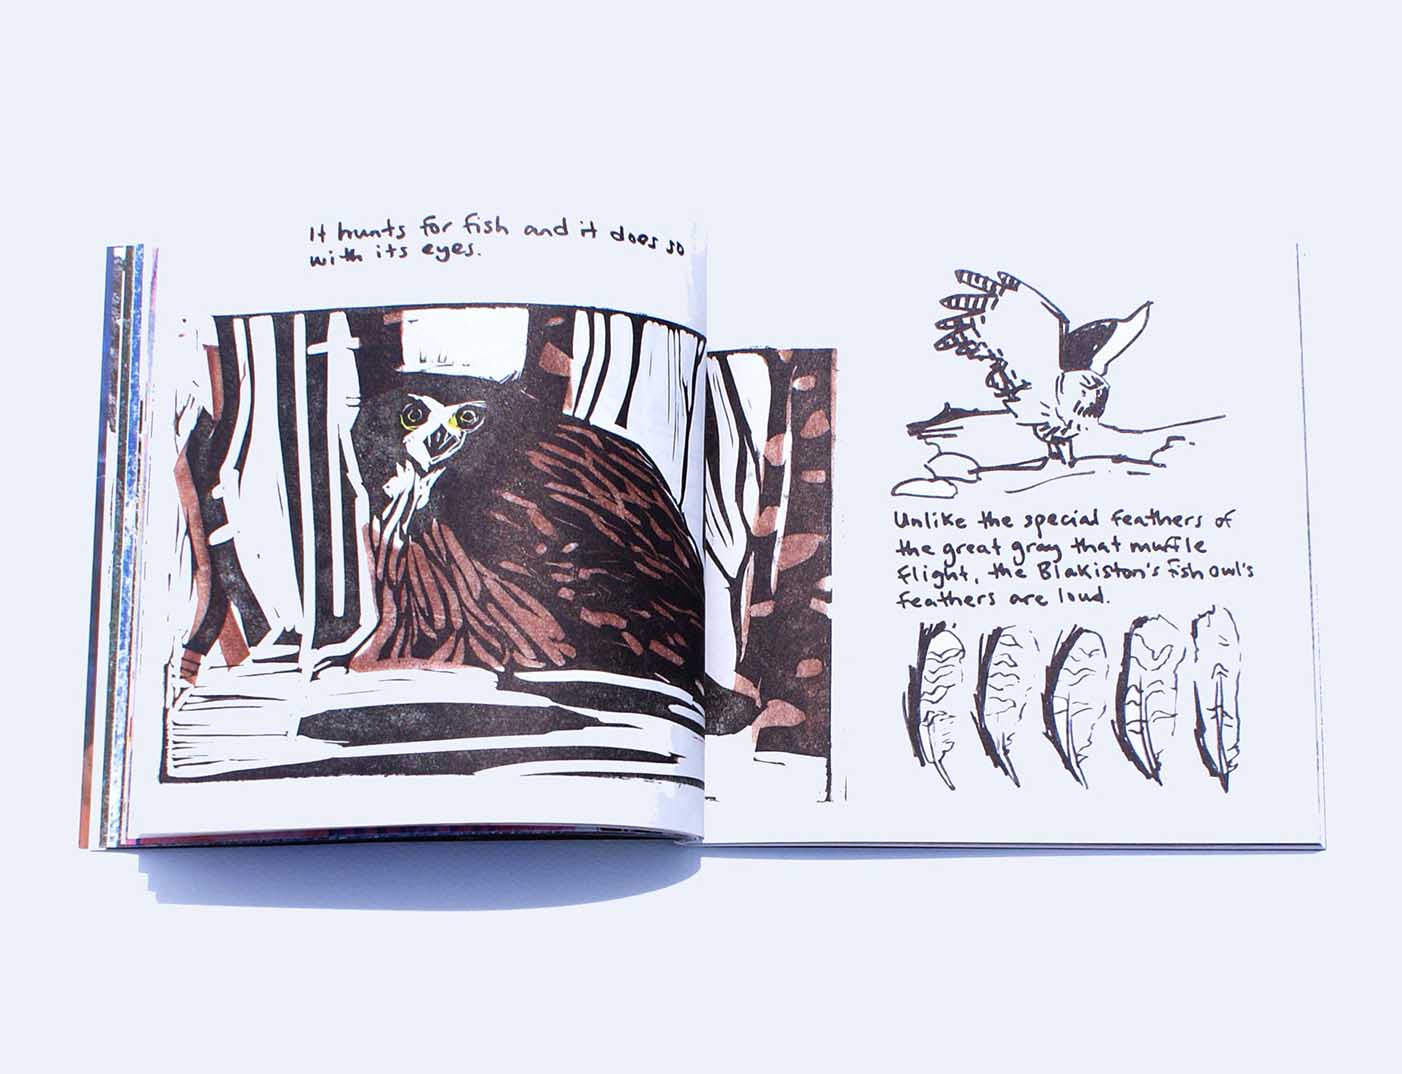 It hunts for fish and it does so
with its eyes.
Unlike the special feathers of
the great gray that muffle
flight, the Blakiston's fish owl's
feathers are loud.